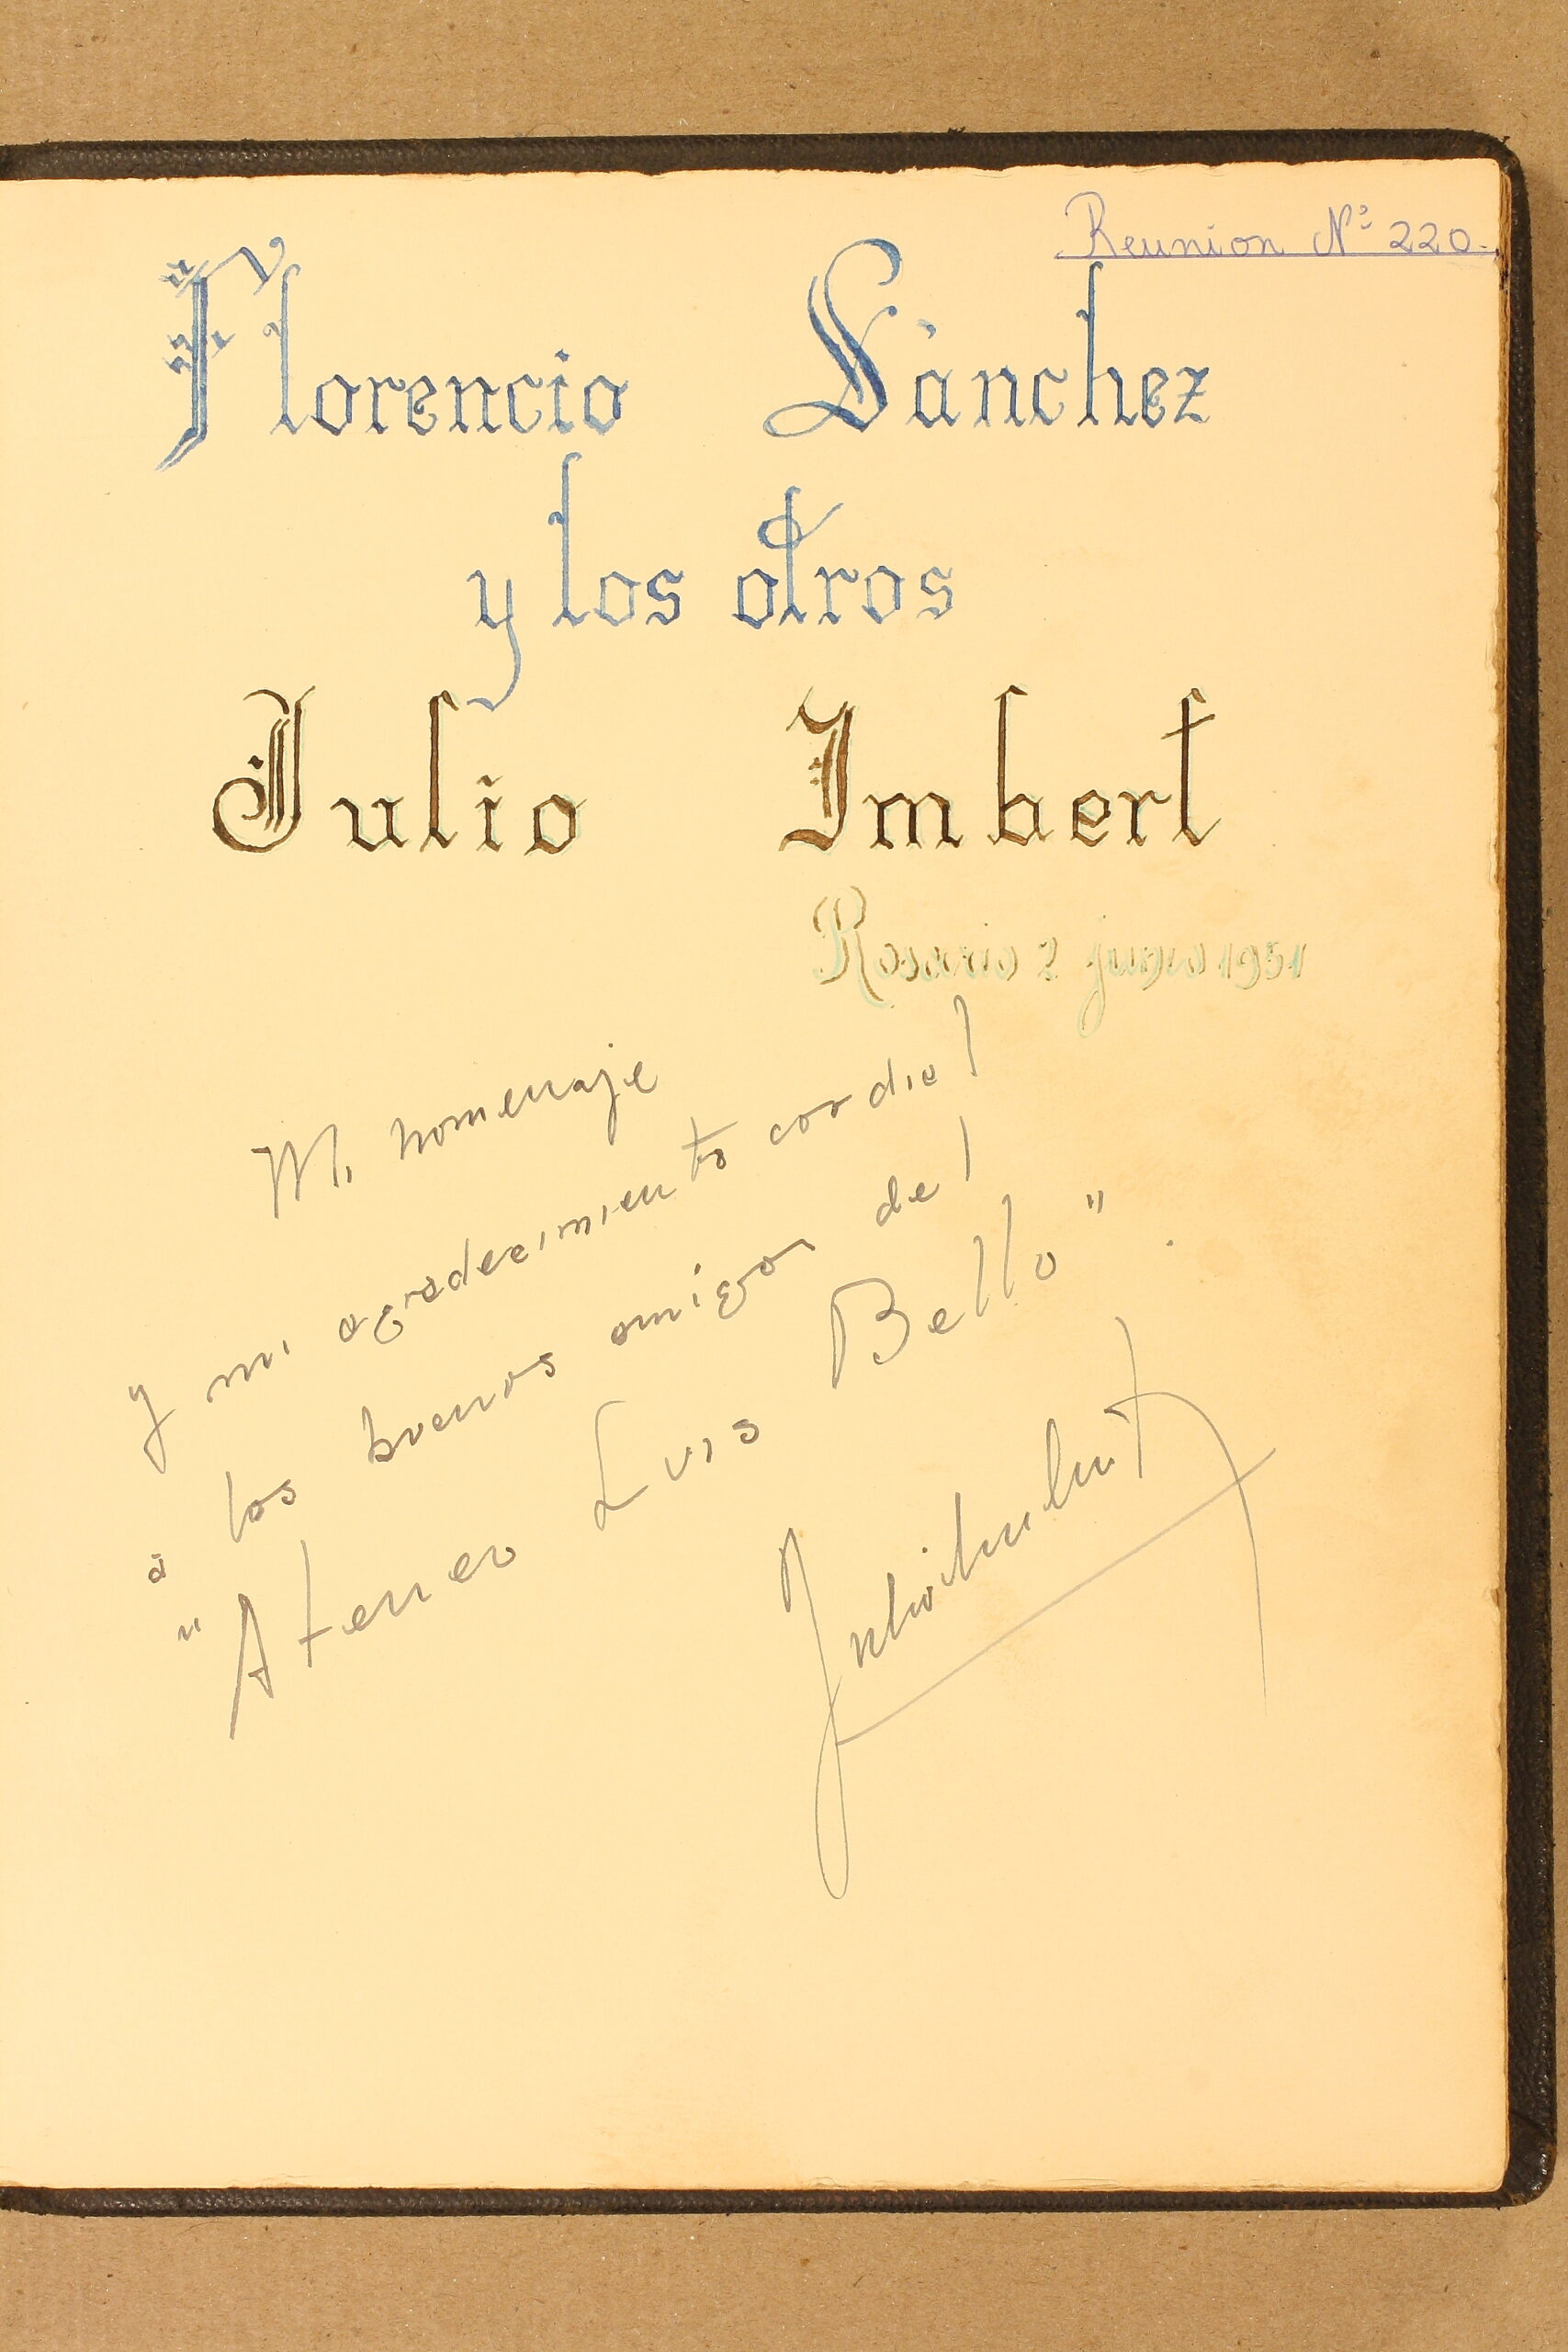 Reunion Nº 220.
Florencio Sánchez
y los otros
Julio Imbert
Rosario 2 junio 1951
Mi homenaje
y mi agradecimiento cordial
a los buenos amigos del
"Ateneo Luis Bello".
Julio Imbert